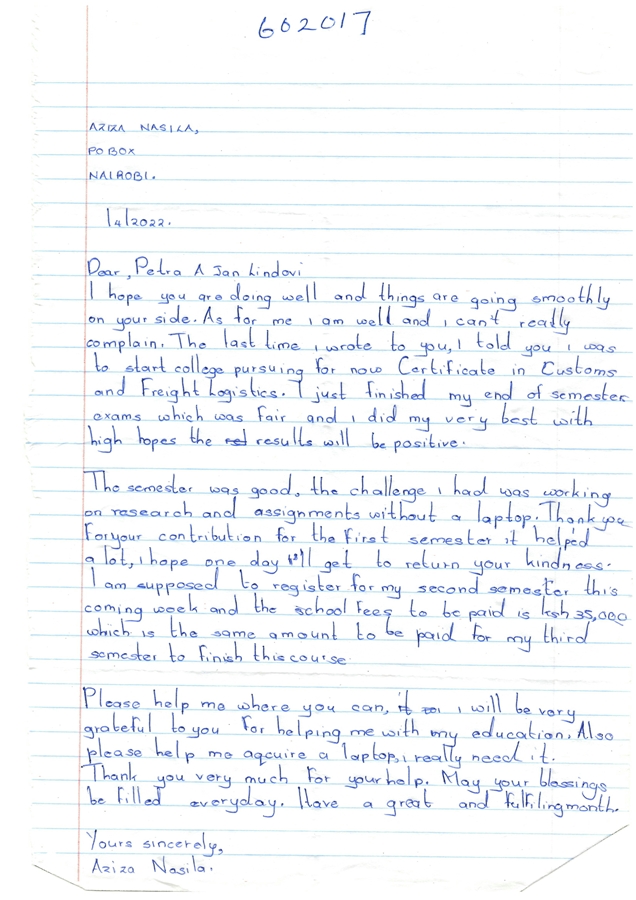 602017
AZIZA NASILA,
PO BOX
NAIROBI.
1/4/2022.
Dear, Petra A Jan Lindovi
I hope you are doing well and things are going smoothly
on your side. As for me i am well and i can't really
complain. The last time i wrote to you, I told you i was
to start college pursuing for now Certificate in Customs
and Freight Logistics. I just finished my end of semester
exams which was fair and i did my very best with
high hopes the results will be positive.
The semester was good, the challenge i had was working
on research and assignments without a laptop. Thank you
For your contribution for the first semester it helped
a lot, i hope one day I'll get to return your kindness.
I am supposed to register for my second semester this
coming week and the school Fees to be paid is ksh 35,000
which is the same amount to be paid for my third
semester to finish this course
Please help me where you can, i will be very
grateful to you For helping me with my education. Also
please help me aqcuire a laptop, i really need it.
Thank you very much For your help. May your blessings
be filled everyday. Have a great and fulfiling month.
Yours sincerely,
Aziza Nasila.